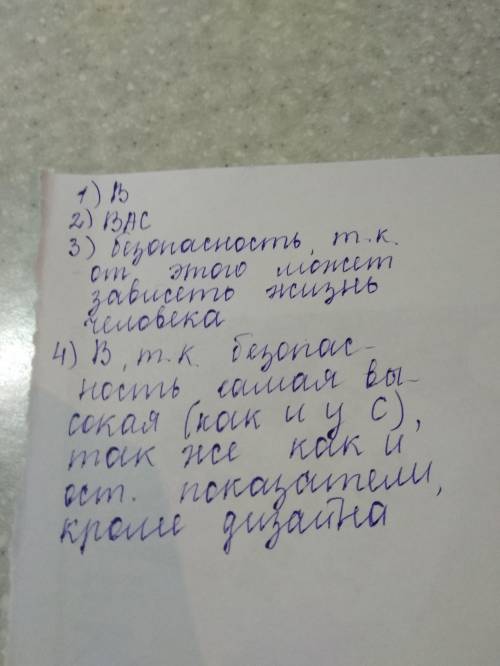 1) В
2) ВАС
3) безопасность, т.к.
от этого может
зависеть жизнь
человека
4) В, т.к. безопас-
ность самая вы-
сокая (как и у С),
так же как и
ост. показатели,
кроме дизайна